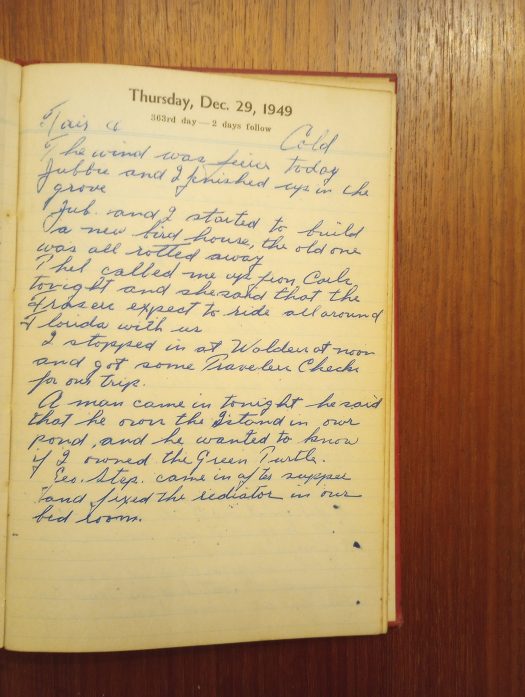 Thursday, Dec. 29, 1949
363rd day — 2 days follow
Fair & Cold
The wind was today
Jubbie and I finished up in the
grove
Jub. and I started to build
a new bird house, the old one
was all rotted away
Thel called me up from
tonight and she said that the
Frasers expect to ride all around
Florida with us
I stopped in at Walden at noon
and got some Travelers Checks
for our trip.
A man came in tonight he said
that he own the Island in our
pond, and he wanted to know
if I owned the Green Turtle.
Geo. Step. came in after supper
and fixed the rediator in our
bed room.